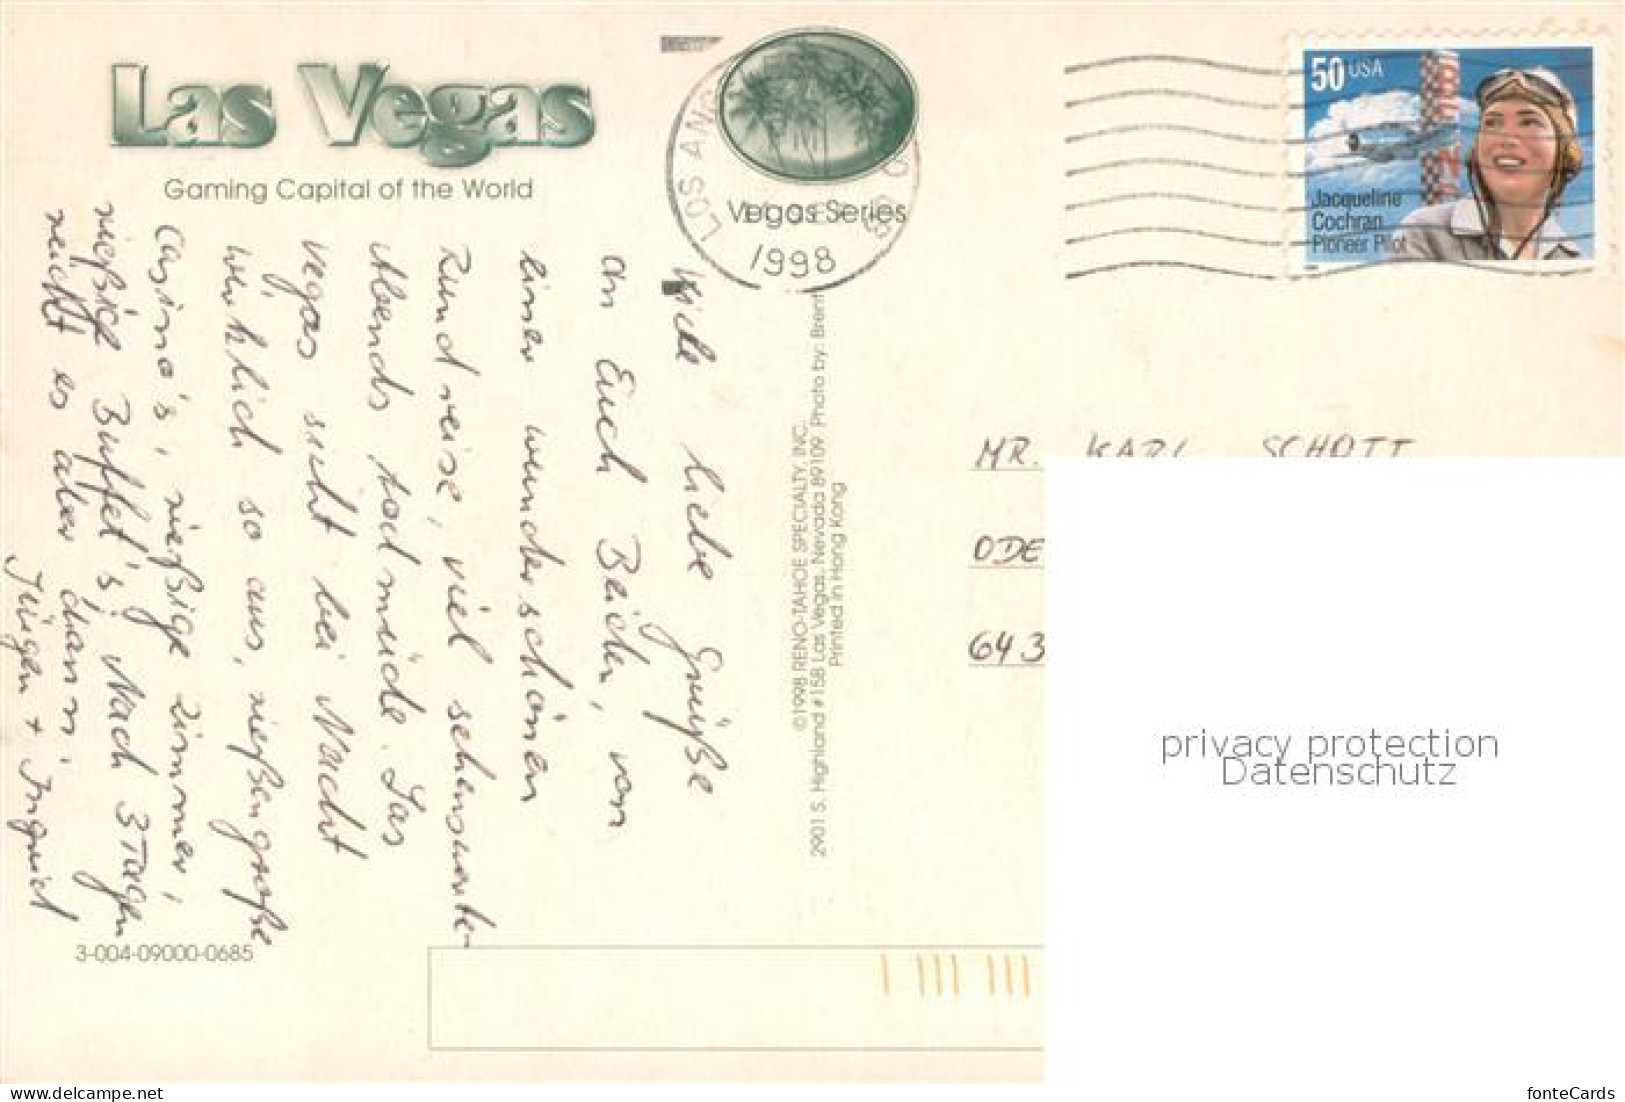 Las Vegas
Gaming Capital of the World
Vegas Series
LOS ANG
1998
50 USA
Jacqueline
Cochran
Pioneer Pilot
BEND
Viele liebe Grüße
an Euch Beiden, von
einer wunderschönen
Rundreise, viel sehenswerte-
Abends todmüde. Las
Vegas sieht bei Nacht
wirklich so aus, rießengroße
Casino's, rießige Zimmer,
rießige Buffet's Nach 3 Tagen
reicht es aber dann.
Jürgen + Ingrid
©1998 RENO-TAHOE SPECIALTY, INC.
2901 S. Highland #15B Las Vegas, Nevada 89109 Photo by: Brent
Printed in Hong Kong
MR. KARL SCHOTT
ODE
643
privacy protection
Datenschutz
3-004-09000-0685
www.delcampe.net
fonteCards